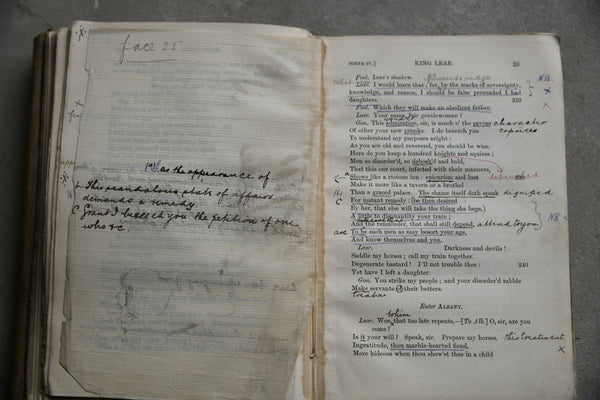 face 25
(a) as the appearance of
b. This scandalous state of affairs
demands a remedy.
c Grant I beseech you the petition of one
who &c.
SCENE IV.] KING LEAR. 25
Fool. Lear's shadow.
Lear. I would learn that; for, by the marks of sovereignty, NB.
knowledge, and reason, I should be false persuaded I had x
daughters. 220
Fool. Which they will make an obedient father.
Lear. Your name, fair gentlewoman?
Gon. This admiration, sir, is much o' the savour character
Of other your new pranks. I do beseech you caprices
To understand my purposes aright:
As you are old and reverend, you should be wise.
Here do you keep a hundred knights and squires;
Men so disorder'd, so debosh'd and bold,
That this our court, infected with their manners, debauched
Shows like a riotous inn: epicurism and lust
Make it more like a tavern or a brothel
(b) Than a graced palace. The shame itself doth speak dignified
c For instant remedy: be then desired
By her, that else will take the thing she begs,
A little to disquantity your train; NB x
And the remainder, that shall still depend, attend to you
are To be such men as may besort your age,
And know themselves and you.
Lear. Darkness and devils!
Saddle my horses; call my train together.
Degenerate bastard! I'll not trouble thee: 240
Yet have I left a daughter.
Gon. You strike my people; and your disorder'd rabble
Make servants of their betters.
Enter ALBANY.
Lear. Woe, that too late repents,—[To Alb.] O, sir, are you
come?
Is it your will? Speak, sir. Prepare my horses. this treatment
Ingratitude, thou marble-hearted fiend, x
More hideous when thou show'st thee in a child